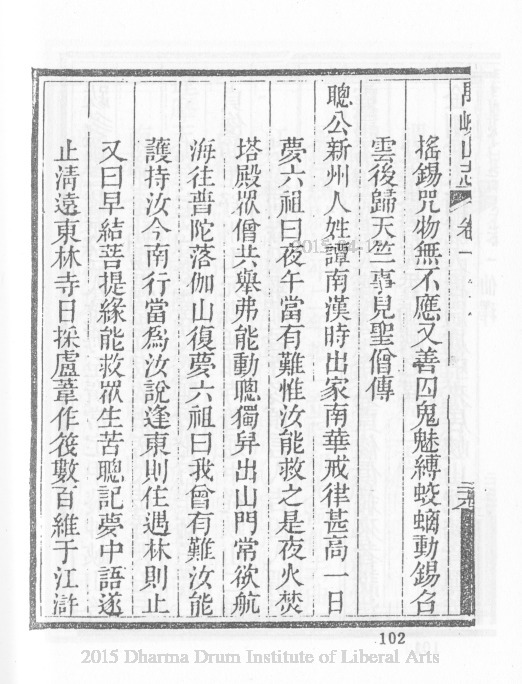 禺峽山志 卷一
搖錫咒物無不應又善囚鬼魅縛蛟螭動錫召
雲後歸天竺事見聖僧傳
聰公新州人姓譚南漢時出家南華戒律甚高一日
夢六祖曰夜午當有難惟汝能救之是夜火焚
塔殿眾僧共舉弗能動聰獨舁出山門常欲航
海往普陀落伽山復夢六祖曰我曾有難汝能
護持汝今南行當爲汝說逢東則住遇林則止
又曰早結菩提緣能救眾生苦聰記夢中語遂
止淸遠東林寺日採盧葦作筏數百維于江滸
102
2015 Dharma Drum Institute of Liberal Arts